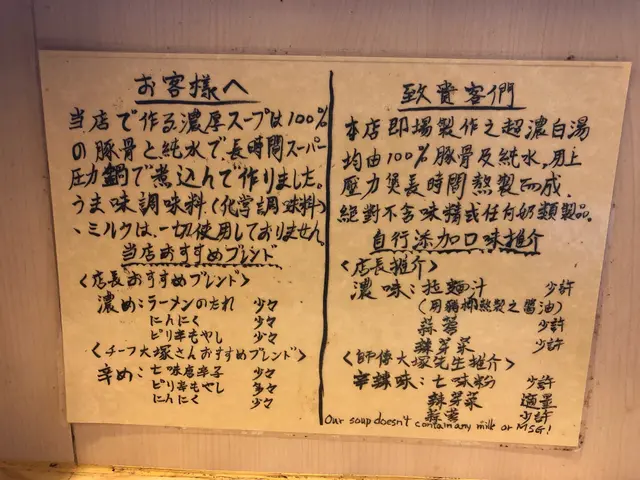 お客様へ
当店で作る濃厚スープは100%
の豚骨と純水で、長時間スーパー
圧力鍋で煮込んで作りました。
うま味調味料(化学調味料)
、ミルクは、一切使用しておりません。
当店おすすめブレンド
<店長おすすめブレンド>
濃め:ラーメンのたれ 少々
にんにく 少々
ピリ辛もやし 少々
<チーフ大塚さんおすすめブレンド>
辛め:七味唐辛子 少々
ピリ辛もやし 多々
にんにく 少々
致貴客們
本店即場製作之超濃白湯
均由100%豚骨及純水,用上
壓力煲長時間熬製而成.
絕對不含味精或任何奶類製品。
自行添加口味推介
<店長推介>
濃味:拉麵汁 少許
(用豬柳熬製之醬油)
蒜蓉 少許
辣芽菜 少許
<師傅大塚先生推介>
辛辣味:七味粉 少許
辣芽菜 適量
蒜蓉 少許
Our soup doesn't contain any milk or MSG!